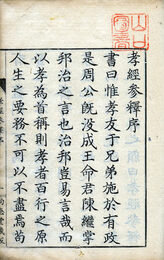 孝經參釋序
書曰惟孝友于兄弟施於有政
是周公既沒成王命君陳繼掌
邦治之言也治邦豈易言哉而
以孝為首稱則孝者百行之原
人生之要務不可以不盡焉尚